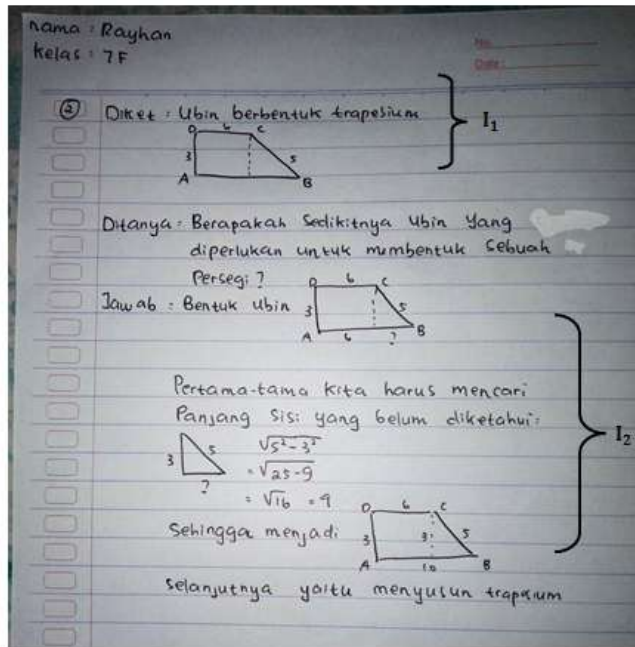 nama : Rayhan
kelas : 7F
No.
Date :
② Diket : Ubin berbentuk trapesium
I₁
D 6 C
3 5
A B
Ditanya : Berapakah Sedikitnya Ubin yang
diperlukan untuk membentuk Sebuah
Persegi ?
Jawab : Bentuk Ubin
D 6 C
3 5
A 6 ? B
Pertama-tama kita harus mencari
Panjang Sisi yang belum diketahui :
I₂
3 5
?
√5²-3²
= √25-9
= √16 = 4
Sehingga menjadi
D 6 C
3 3 5
A 10 B
Selanjutnya yaitu menyusun trapesium